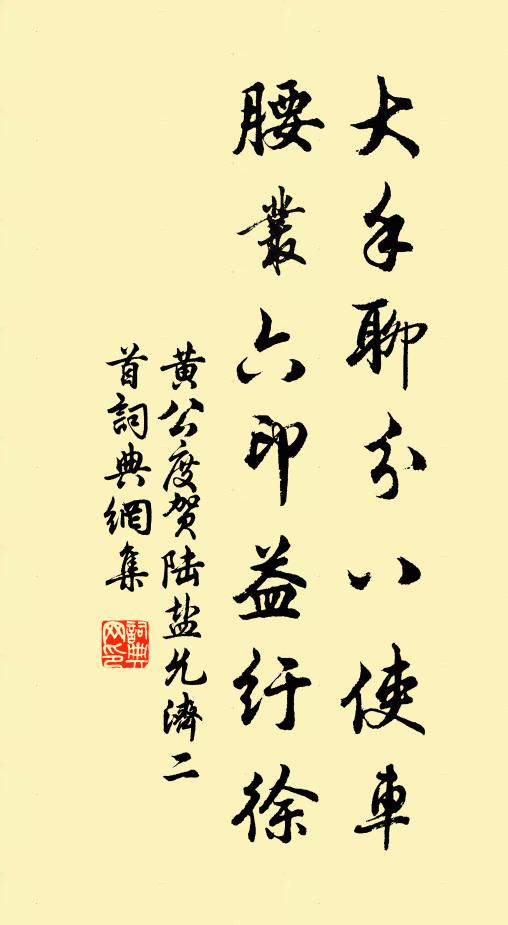 大手聊分八使車
腰叢六印益紆徐
黄公度贺陆盐允濟二
首詞典網集
詞典網印